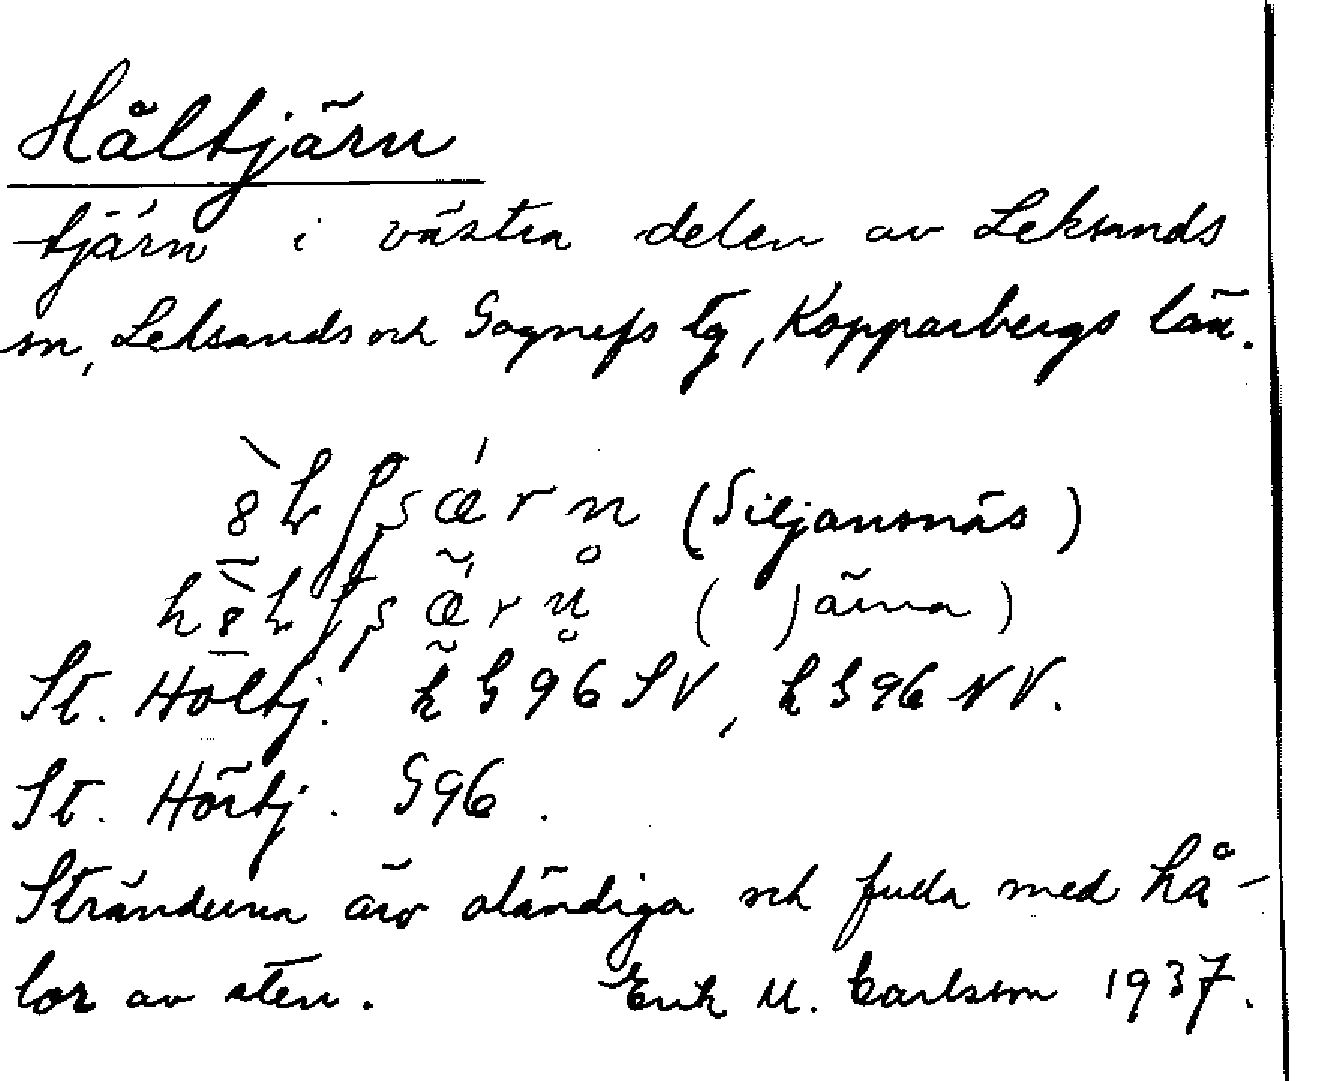 Håltjärn
tjärn i västra delen av Leksands
sn, Leksands och Gagnefs tg, Kopparbergs län.
(Siljansnäs)
St. Holtj. k G 96 SV, k G 96 NV.
St. Hörtj. G 96.
Stränderna äro oländiga och fula med hå-
lor av sten. Erik M. Carlsson 1937.